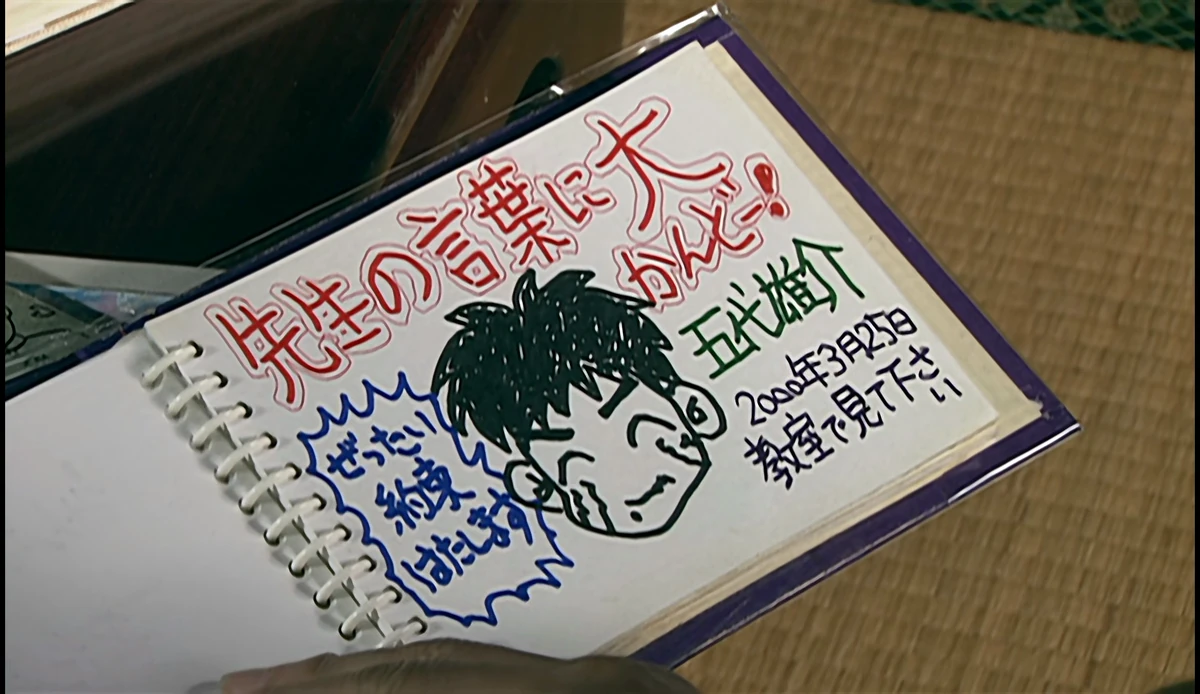 先生の言葉に大
かんどー!
五代雄介
2000年3月25日
教室で見て下さ
い
ぜったい
約束
はたします